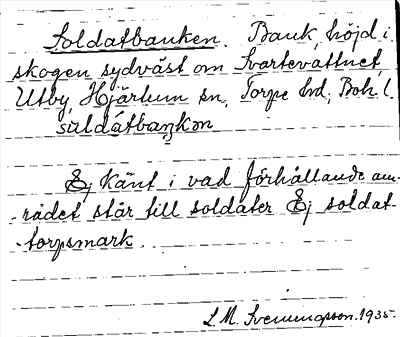 Soldatbanken. Bank, höjd i
skogen sydväst om Svartevattnet,
Utby, Hjärtum sn, Torpe hd, Boh. l.
sùldátbaŋkən
Ej känt i vad förhållande om-
rådet står till soldater. Ej soldat-
torpsmark.
L. M. Svenungsson. 1935.